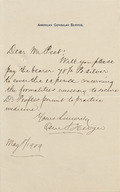 AMERICAN CONSULAR SERVICE.
Dear Mr Peet:
Will you please
pay the bearer 78 silver
to cover the expense concerning
the formalities necessary to secure
Dr permit to practice
medicine.
Yours Sincerely
May